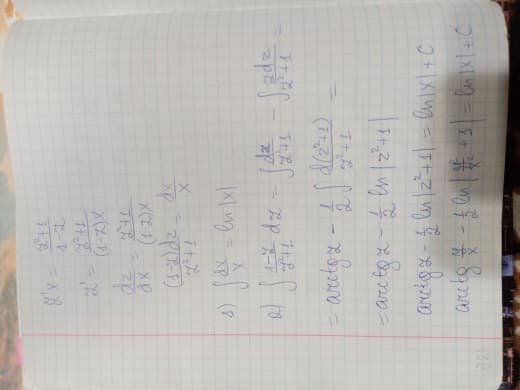 z'x = (z²+1)/(1-z)
z' = (z²+1)/((1-z)x)
dz/dx = (z²+1)/((1-z)x)
(1-z)dz/(z²+1) = dx/x
1) ∫ dx/x = ln|x|
2) ∫ (1-z)/(z²+1) dz = ∫ dz/(z²+1) - ∫ zdz/(z²+1) =
= arctg z - 1/2 ∫ d(z²+1)/(z²+1) =
= arctg z - 1/2 ln|z²+1|
arctg z - 1/2 ln|z²+1| = ln|x| + C
arctg y/x - 1/2 ln|y²/x² + 1| = ln|x| + C